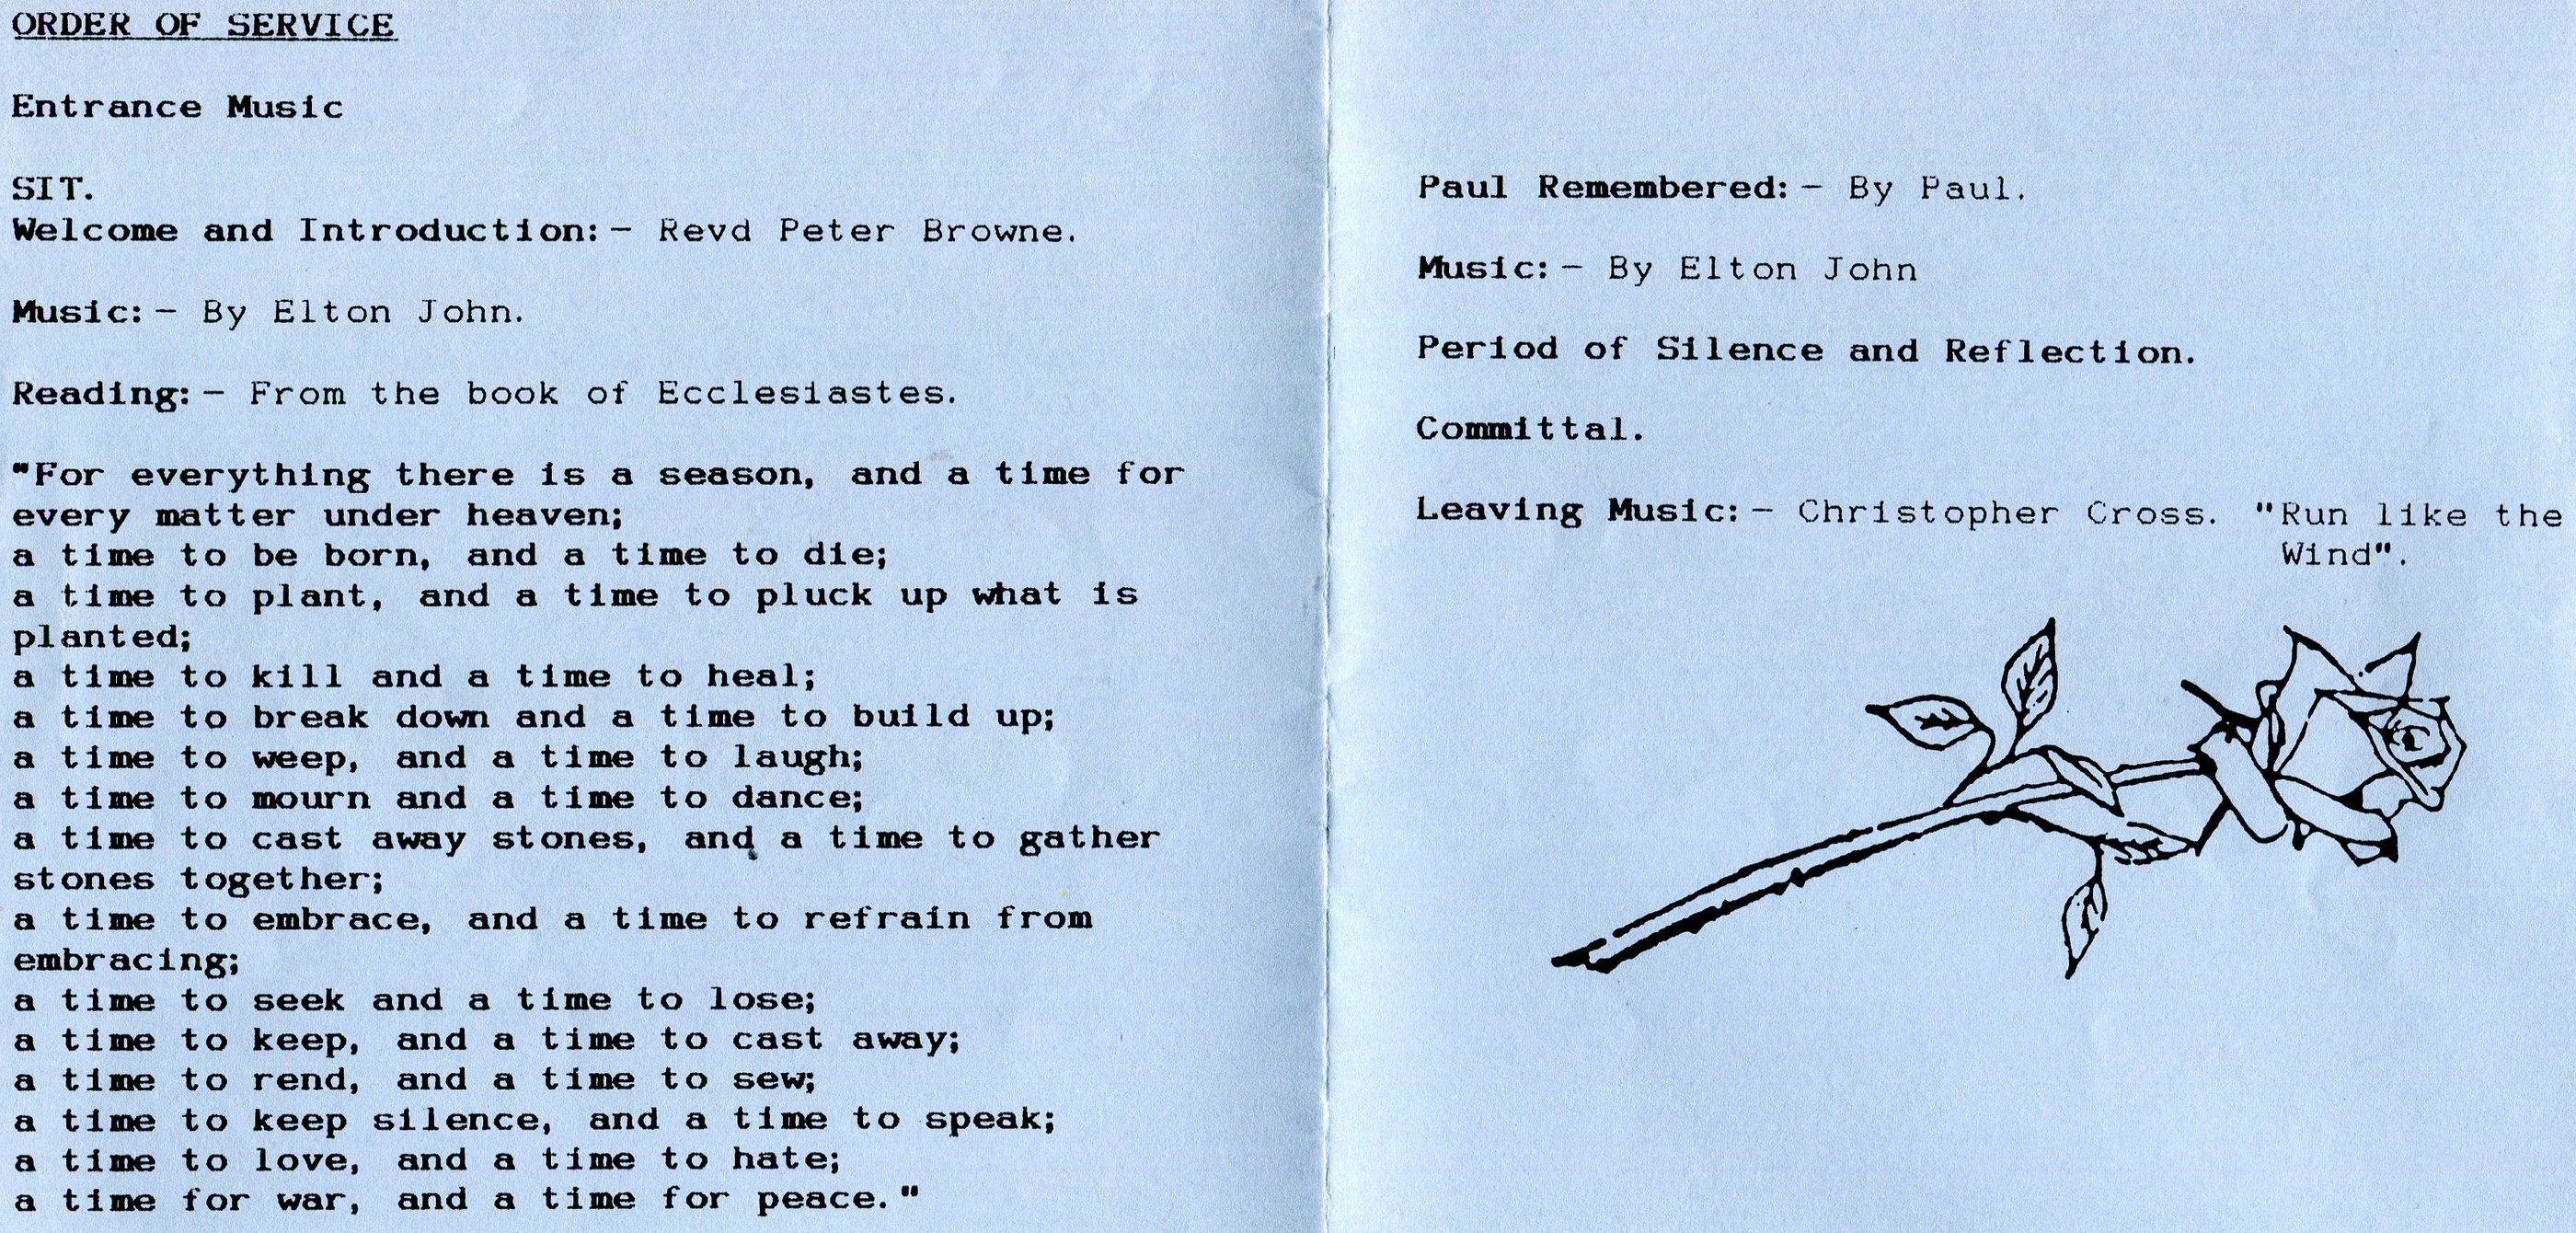 ORDER OF SERVICE
Entrance Music
SIT.
Welcome and Introduction:- Revd Peter Browne.
Music:- By Elton John.
Reading:- From the book of Ecclesiastes.
"For everything there is a season, and a time for
every matter under heaven;
a time to be born, and a time to die;
a time to plant, and a time to pluck up what is
planted;
a time to kill and a time to heal;
a time to break down and a time to build up;
a time to weep, and a time to laugh;
a time to mourn and a time to dance;
a time to cast away stones, and a time to gather
stones together;
a time to embrace, and a time to refrain from
embracing;
a time to seek and a time to lose;
a time to keep, and a time to cast away;
a time to rend, and a time to sew;
a time to keep silence, and a time to speak;
a time to love, and a time to hate;
a time for war, and a time for peace."
Paul Remembered:- By Paul.
Music:- By Elton John
Period of Silence and Reflection.
Committal.
Leaving Music:- Christopher Cross. "Run like the
Wind".